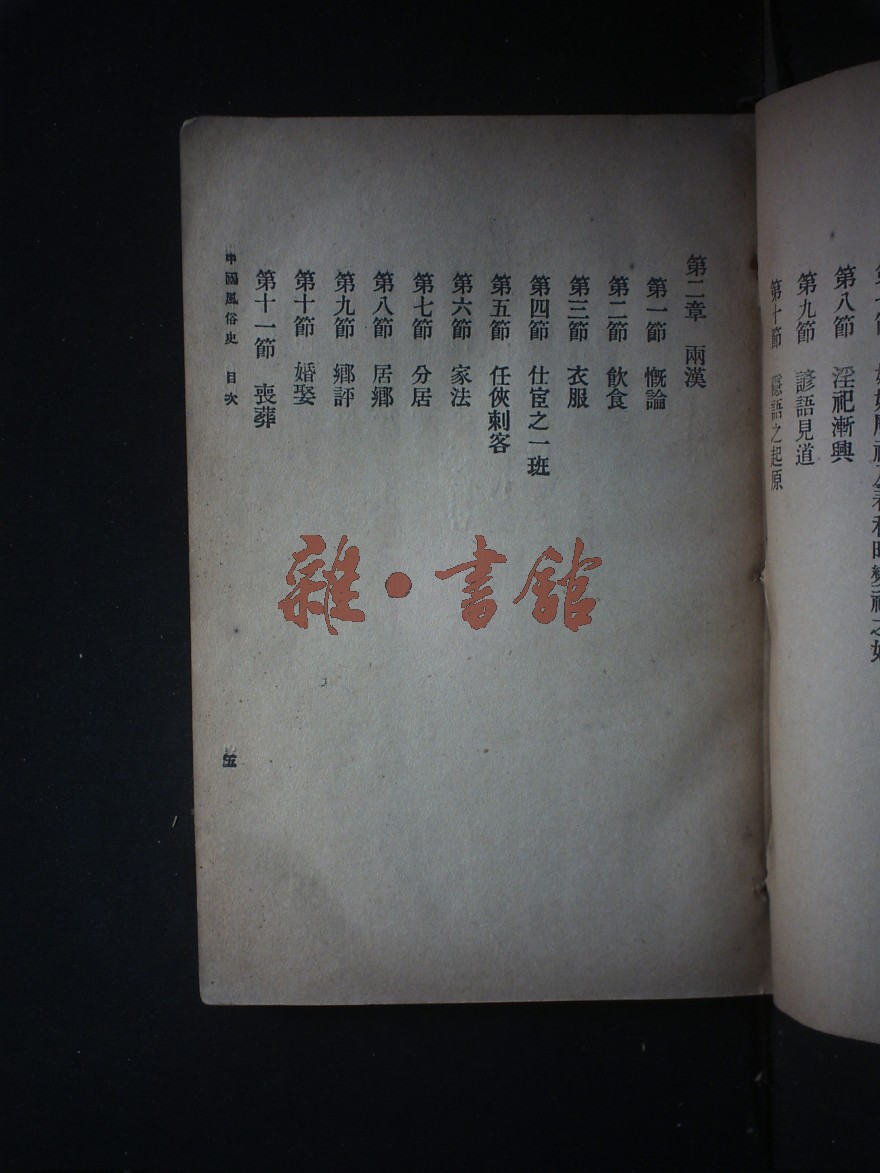 第八節　淫祀漸興
第九節　諺語見道
第十節　隱語之起原
第二章　兩漢
第一節　慨論
第二節　飲食
第三節　衣服
第四節　仕宦之一班
第五節　任俠刺客
第六節　家法
第七節　分居
第八節　居鄉
第九節　鄉評
第十節　婚娶
第十一節　喪葬
中國風俗史　目次
五
雜·書館